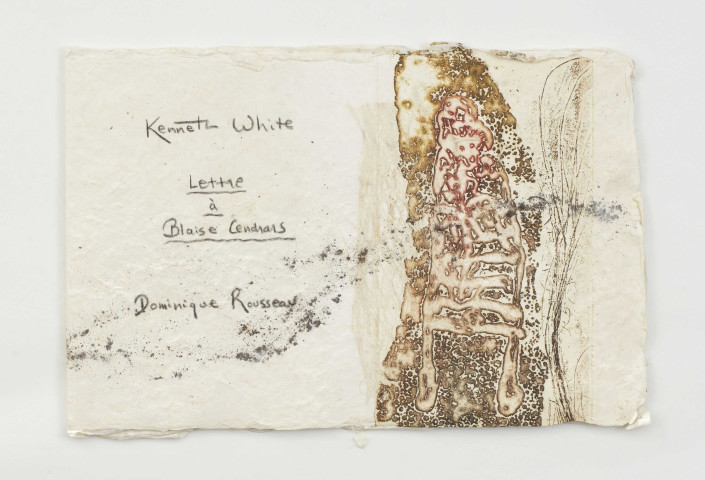 Kenneth White
Lettre
à
Blaise Cendrars
Dominique Rousseau